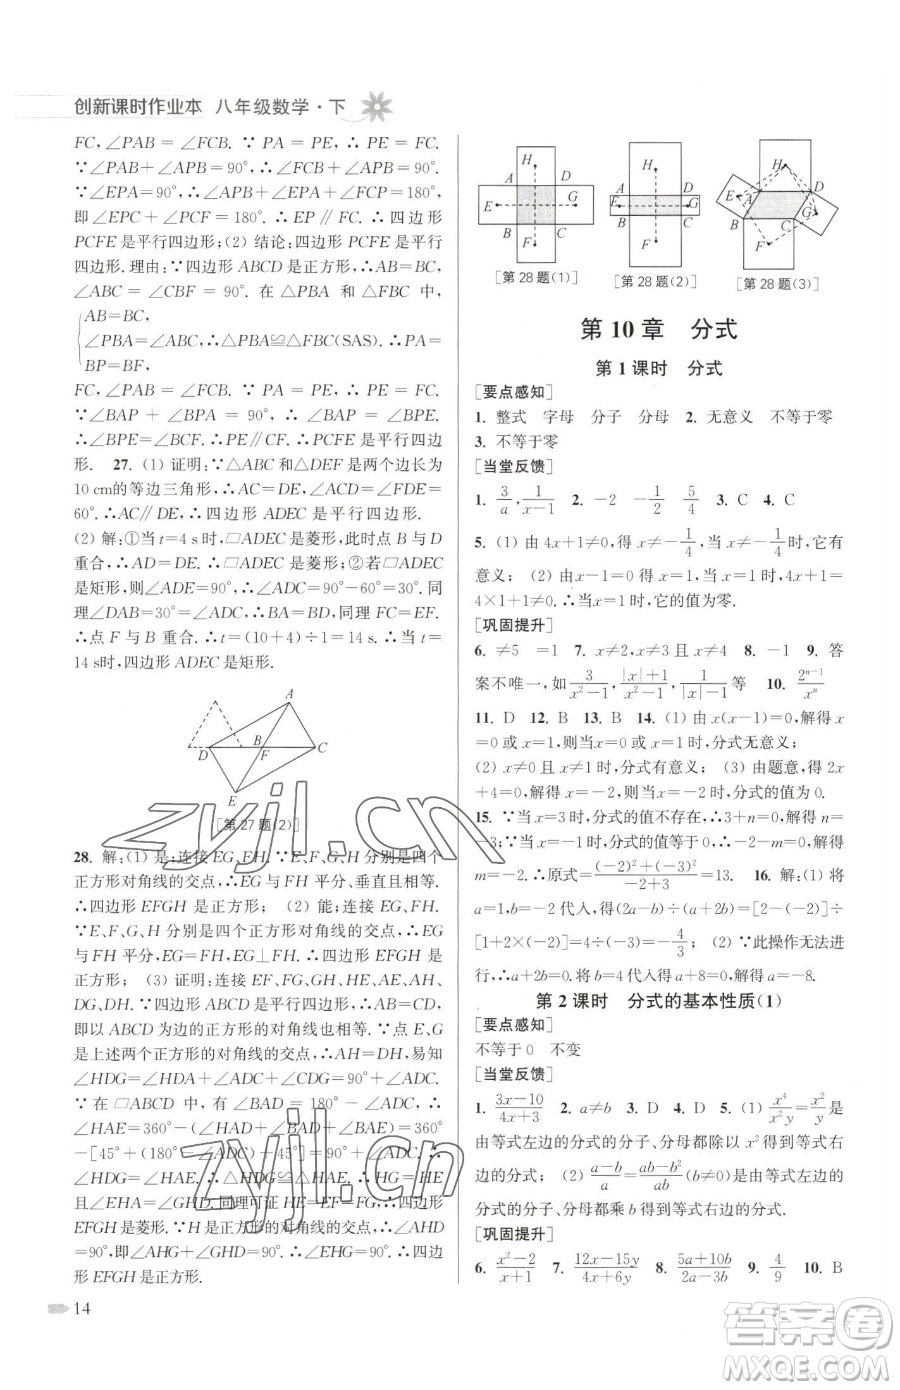 创新课时作业本 八年级数学·下
FC,∠PAB=∠FCB. ∵PA=PE,∴PE=FC.
∵∠PAB+∠APB=90°,∴∠FCB+∠APB=90°.
∵∠EPA=90°,∴∠APB+∠EPA+∠FCP=180°,
即∠EPC+∠PCF=180°.∴EP∥FC.∴四边形
PCFE是平行四边形;(2)结论:四边形PCFE是平行
四边形.理由:∵四边形ABCD是正方形,∴AB=BC,
∠ABC=∠CBF=90°. 在△PBA和△FBC中,
AB=BC,
∠PBA=∠FBC,∴△PBA≌△FBC(SAS).∴PA=
BP=BF,
FC,∠PAB=∠FCB. ∵PA=PE,∴FC=PE.
∵∠BAP+∠BPA=90°,∴∠BAP=∠BPE.
∴∠BPE=∠BCF.∴PE∥CF.∴PCFE是平行四边
形. 27. (1)证明:∵△ABC和△DEF是两个边长为
10 cm的等边三角形,∴AC=DE,∠ACD=∠FDE=
60°.∴AC∥DE,∴四边形ADEC是平行四边形.
(2)解:①当t=4 s时,□ADEC是菱形,此时点B与D
重合,∴□ADEC是菱形;②若□ADEC
是矩形,则∠ADE=90°.∴∠ADC=90°-60°=30°.同
理∠DAB=30°=∠ADC,∴BA=BD,同理FC=EF.
∴点F与B重合.∴t=(10+4)÷1=14 s.∴当t=
14 s时,四边形ADEC是矩形.
A
D
B
F
C
E
[第27题(2)]
28. 解:(1)是;连接EG,FH.∵E、F、G、H分别是四个
正方形对角线的交点,∴EG与FH平分、垂直且相等.
∴四边形EFGH是正方形; (2)能;连接EG,FH.
∵E、F、G、H分别是四个正方形对角线的交点,∴EG
与FH平分,EG=FH,EG⊥FH.∴四边形EFGH是正
方形; (3)证明:连接EF、FG、GH、HE、AE、AH、
DG、DH. ∵四边形ABCD是平行四边形,∴AB=CD,
即以AB与CD为边的正方形的对角线也相等.∵点E、G
是上述两个正方形的对角线的交点,∴AH=DH,易知
∠HDG=∠HDA+∠ADC+∠CDG=90°+∠ADC.
∵在□ABCD中,有∠BAD=180°-∠ADC,∴
∠HAE=360°-(∠HAD+∠EAB+∠BAD)=360°
-[45°+(180°-∠ADC)+45°]=90°+∠ADC.∴
∠HDG=∠HAE.∴△HDG≌△HAE.∴HG=HE
且∠EHA=∠GHD.同理可证HE=EF=FG.∴四边形
EFGH是菱形.∵H是正方形的对角线的交点,∴∠AHD
=90°,即∠AHG+∠GHD=90°.∴∠EHG=90°.∴四边形
EFGH是正方形.
14
H A D E G B C F
[第28题(1)]
H A D E G B C F
[第28题(2)]
H D A E G B C F
[第28题(3)]
第10章 分式
第1课时 分式
[要点感知]
1. 整式 字母 分子 分母 2. 无意义 不等于零
3. 不等于零
[当堂反馈]
1. 3/a,1/(x-1) 2. -2 -1/2 5/4 3. C 4. C
5. (1)由4x+1≠0,得x≠-1/4,∴当x≠-1/4时,它有
意义; (2)由x-1=0得x=1.∴当x=1时,4x+1=
4×1+1≠0.∴当x=1时,它的值为零.
[巩固提升]
6. ≠5 =1 7. x≠2,x≠3且x≠4 8. -1 9. 答
案不唯一,如3/(x²-1),(|x|+1)/(x²-1),1/(|x|-1)等 10. 2ⁿ⁻¹/xⁿ
11. D 12. B 13. B 14. (1)由x(x-1)=0,解得x
=0或x=1,则当x=0或x=1时,分式无意义;
(2)x≠0且x≠1时,分式有意义; (3)由题意,得x
+2=0,解得x=-2.∴当x=-2时,分式的值为0.
15. ∵当x=3时,分式的值不存在,∴3+n=0.∴n=
-3;∵当x=2时,分式的值等于0,∴-2-m=0.解得
m=-2.∴原式=((-2)²+(-3)²)/(-2+3)=13. 16. 解:(1)当
a=1,b=-2代入,得(2a-b)÷(a+2b)=[2-(-2)]÷
[1+2×(-2)]=-4/3; (2)∵此操作无法进
行,∴a+2b=0.将b=4代入得a+2×4=0.解得a=-8.
第2课时 分式的基本性质(1)
[要点感知]
不等于0 不变
[当堂反馈]
1. (3x-10)/(4x+3) 2. a≠b 3. D 4. D 5. (1)x⁴/(x²y)=x²/y是
由等式左边的分式的分子、分母都除以x²得到等式右
边的分式; (2)(a-b)/a=(ab-b²)/ab(b≠0)是由等式左边的
分式的分子、分母都乘b得到等式右边的分式.
[巩固提升]
6. (x²-2)/(x+1) 7. (12x-15y)/(4x+6y) 8. (5a+10b)/(2a-2b) 9. 4/9 10. B
zyjl.cn
zyjl.cn
答案圈
MXQE.COM